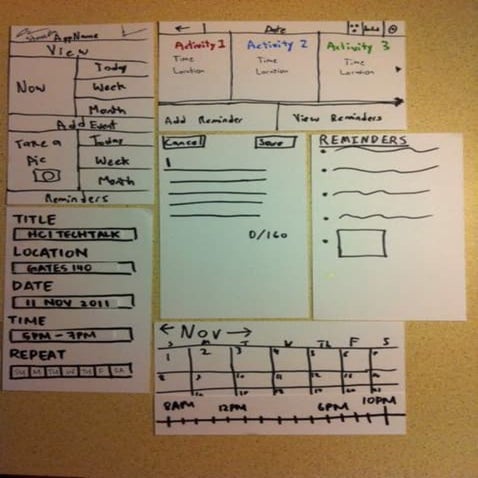 AppName
View
Now
Today
Week
Month
Add Event
Take a Pic
Today
Week
Month
Reminders
Date
Activity 1
Time
Location
Activity 2
Time
Location
Activity 3
Time
Location
Add Reminder
View Reminders
Cancel
Save
0/160
REMINDERS
TITLE
HCI TECH TALK
LOCATION
GATES 140
DATE
11 NOV 2011
TIME
6PM - 7PM
REPEAT
SU M TU W TH F SA
← Nov →
S M T W Th F S
1 2 3 4 5 6
8AM 12PM 6PM 10PM